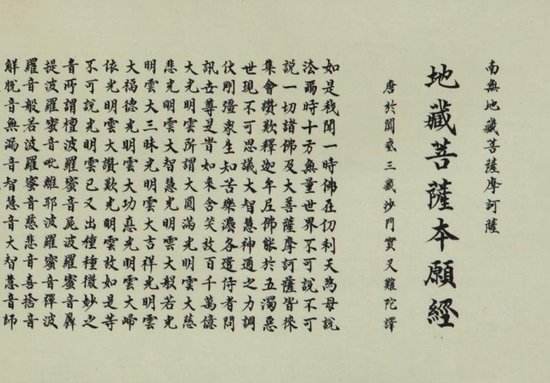 南無地藏菩薩摩訶薩
地藏菩薩本願經
唐於闐國三藏沙門實叉難陀譯
如是我聞一時佛在忉利天為母說
法爾時十方無量世界不可說不可
說一切諸佛及大菩薩摩訶薩皆來
集會讚歎釋迦牟尼佛能於五濁惡
世現不可思議大智慧神通之力調
伏剛彊眾生知苦樂法各遣侍者問
訊世尊是時如來含笑放百千萬億
大光明雲所謂大圓滿光明雲大慈
悲光明雲大智慧光明雲大般若光
明雲大三昧光明雲大吉祥光明雲
大福德光明雲大功德光明雲大歸
依光明雲大讚歎光明雲放如是等
不可說光明雲已又出種種微妙之
音所謂檀波羅蜜音尸波羅蜜音羼
提波羅蜜音毗離耶波羅蜜音禪波
羅音般若波羅蜜音慈悲音喜捨音
解脫音無漏音智慧音大智慧音師